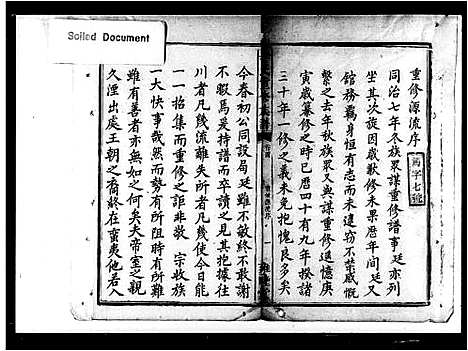 Soiled Document
重修源流序
萬字七號
同治七年冬族衆謀重修譜事廷亦列
坐其次旋因歲歉修未果曆年間廷又
館務羈身恒有志而未逮竊不禁感慨
繫之去年秋族衆又興謀重修遐憶庚
寅歲纂修之時已曆四十有九年揆諸
三十年一修之義未免抱愧良多矣
今春初公同設局廷雖不敏終不敢謝
不暇焉爰持譜而卒讀之見其抱據往
川者凡幾流離失所者凡幾使今日能
一一招集而重修之詎非敬宗收族
一大快事哉然而勢有所阻時有所難
雖有善者亦無如之何矣夫帝室之親
久湮出處王朝之裔終在蛮夷他若入